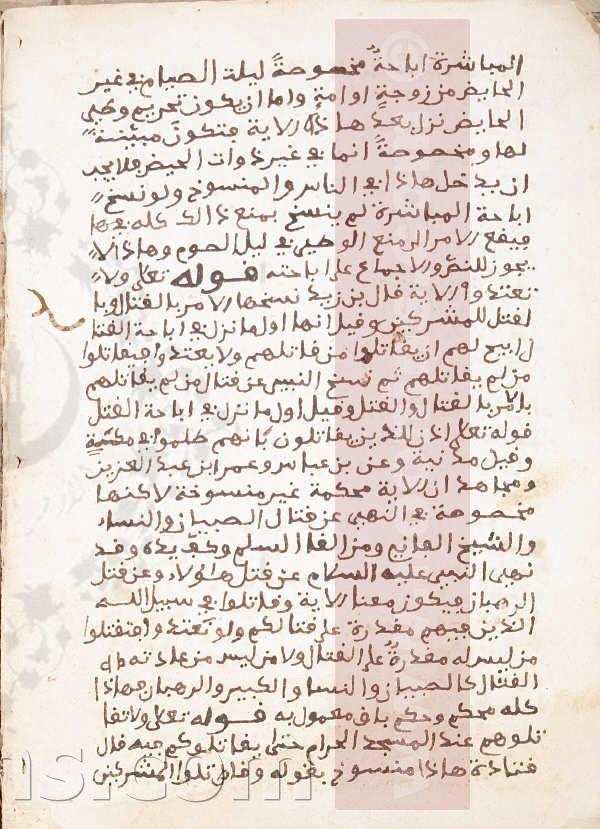 المباشرة اباحةً مخصوصةً ليلة الصيام في غير
الحايض من زوجةٍ او امةٍ واما ان يكون تحريم وطي
الحايض نزل بعد هاذه الاية فتكون مبيّنة
لها ومخصوصةً انها في غير ذوات الحيض فلا يجب
ان يدخل هاذا في الناسخ والمنسوخ ولو نسخ
اباحة المباشرة لم ينسخ بمنع ذالك كله في ها
فيقع الامر لرمنع الوطي في ليل الصوم وهاذا لا
يجوز للنص والاجماع على اباحته قوله تعلى ولا
تعتدوا الاية قال بن زيد نسخها الامر بالقتال وبا
لقتل للمشركين وقيل انها اول ما نزل في اباحة القتا
ل ابيح لهم ان يقاتلوا من قاتلهم ولا يعتدوا فيقاتلوا
من لم يقاتلهم ثم نسخ النهي عن قتال من لم يقاتلهم
بالامر بالقتال والقتل وقيل اول ما نزل في اباحة القتل
قوله تعلى اذن للذين يقاتلون بأنهم ظلموا في مكيّة
وقيل مدنية وعن بن عباس وعمر ابن عبد العزيز
ومجاهد ان الاية محكمة غير منسوخة لاكنها
مخصوصة في النهي عن قتال الصبيان والنساء
والشيخ الفاني ومن القا السلم وكف يده وقد
نهى النبي عليه السلام عن قتل هاولاء وعن قتل
الرهبان فيكون معنا الاية وقاتلوا في سبيل الله
الذين فيهم مقدرة على قتالكم ولا تعتدوا فتقتلوا
من ليس له مقدرةٌ على القتال ولا من ليس من عادته
القتال كالصبيان والنسا والكبير والرهبان فهاذا
كله محكم وحكم باق معمول به قوله تعلى ولا تقا
تلوهم عند المسجد الحرام حتى يقاتلوكم فيه قال
قتادة هاذا منسوخ بقوله وقاتلوا المشركين